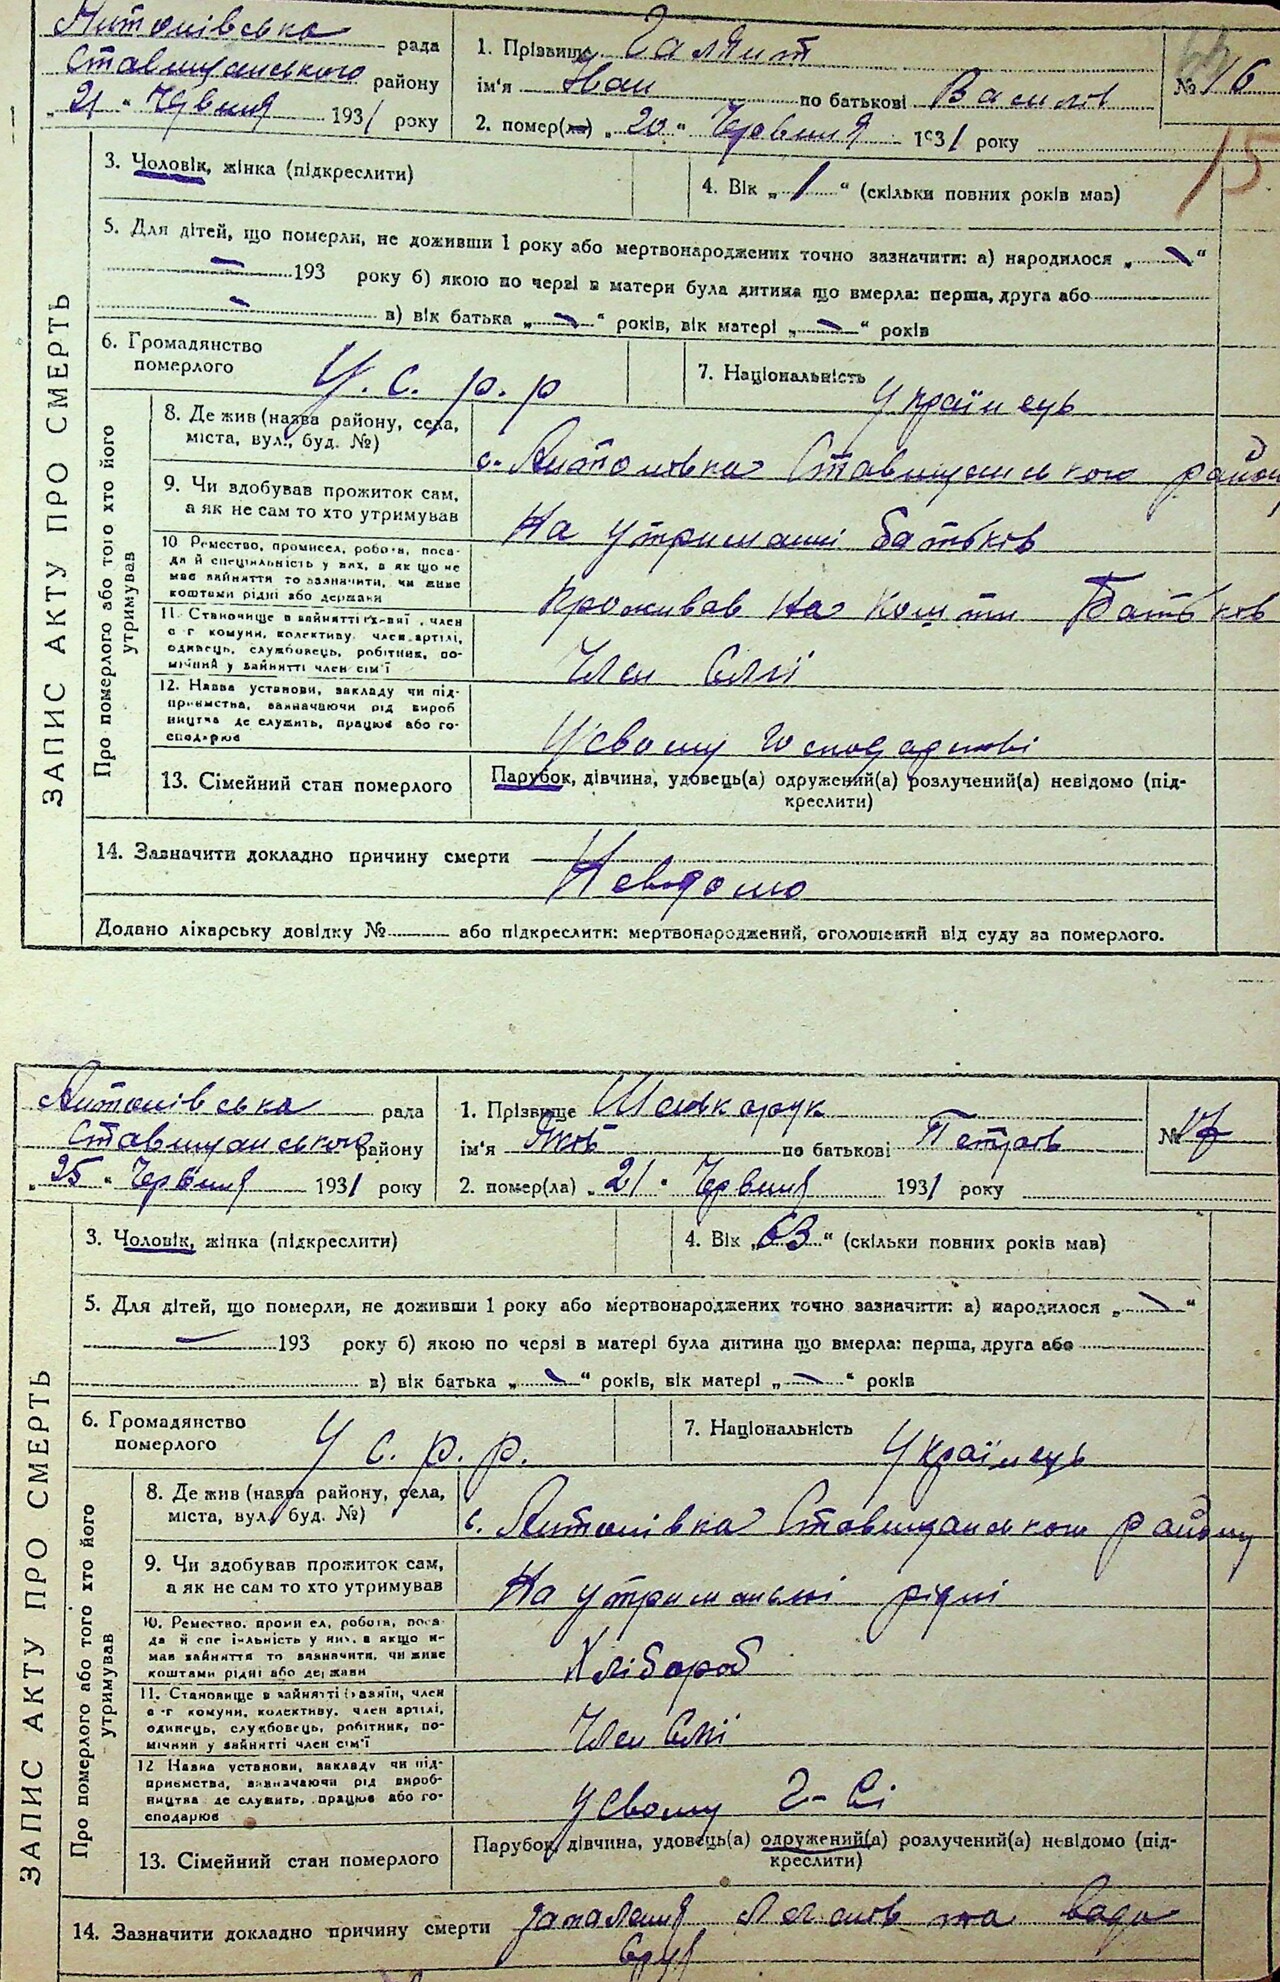 Антонівська рада
Ставищанського району
„21“ Червня 1931 року
1. Прізвище Галяит
ім'я Іван по батькові Василів
2. помер(ла) „20“ Червня 1931 року
№ 16
15
ЗАПИС АКТУ ПРО СМЕРТЬ
3. Чоловік, жінка (підкреслити)
4. Вік „1“ (скільки повних років мав)
5. Для дітей, що померли, не доживши 1 року або мертвонароджених точно зазначити: а) народилося „—“
— 193 року б) якою по черзі в матери була дитина що вмерла: перша, друга або
— в) вік батька „—“ років, вік матері „—“ років
6. Громадянство
померлого
У. с. р. р
7. Національність Українець
Про померлого або того хто його
утримував
8. Де жив (назва району, села,
міста, вул., буд. №)
с. Антонівка Ставищанського району
9. Чи здобував прожиток сам,
а як не сам то хто утримував
На утриманні батьків
10 Ремество, промисел, робота, поса-
да й спеціяльність у них, а як що не
має зайняття то зазначити, чи живе
коштами рідні або держави
Проживав на кошти Батьків
11. Становище в зайнятті , член
с-г комуни, колективу, член артілі,
одинець, службовець, робітник, по-
мічний у зайнятті член сім'ї
Член сімї
12. Назва установи, закладу чи під-
приємства, зазначаючи рід вироб
ництва де служить, працює або го-
сподарює
У свому господарстві
13. Сімейний стан померлого
Парубок, дівчина, удовець(а) одружений(а) розлучений(а) невідомо (під-
креслити)
14. Зазначити докладно причину смерти
Невідомо
Додано лікарську довідку № або підкреслити: мертвонароджений, оголошений від суду за померлого.
Антонівська рада
Ставищанського району
„25“ Червня 1931 року
1. Прізвище Шенкарук
ім'я Яков по батькові Петров
2. помер(ла) „21“ Червня 1931 року
№ 17
ЗАПИС АКТУ ПРО СМЕРТЬ
3. Чоловік, жінка (підкреслити)
4. Вік „63“ (скільки повних років мав)
5. Для дітей, що померли, не доживши 1 року або мертвонароджених точно зазначити: а) народилося „—“
— 193 року б) якою по черзі в матері була дитина що вмерла: перша, друга або
в) вік батька „—“ років, вік матері „—“ років
6. Громадянство
померлого
У с. р. р.
7. Національність Українець
Про померлого або того хто його
утримував
8. Де жив (назва району, села,
міста, вул. буд. №)
с. Антонівка Ставищанського району
9. Чи здобував прожиток сам,
а як не сам то хто утримував
На утриманьні рідні
10. Ремество, проми ел, робота, поса-
да й спе іяльність у них, а якщо н-
має зайняття то зазначити, чи живе
коштами рідні або держави
Хлібороб
11. Становище в зайнятті (хазяїн, член
с-г комуни, колективу, член артілі,
одинець, службовець, робітник, по-
мічний у зайнятті член сім'ї
Член сімї
12 Назва установи, закладу чи під-
приємства, зазначаючи рід вироб-
ництва де служить, працює або го-
сподарює
у свому г-сі
13. Сімейний стан померлого
Парубок, дівчина, удовець(а) одружений(а) розлучений(а) невідомо (під-
креслити)
14. Зазначити докладно причину смерти запаленя легенів та вада
серця